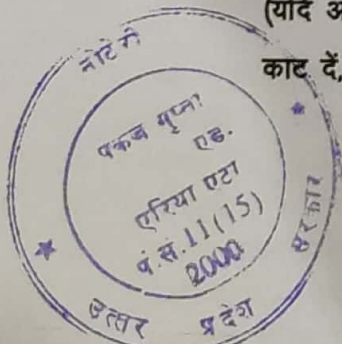 (यदि अ
काट दें,
नोटेरी
पंकज गुप्ता
एड.
एरिया एटा
पं.सं.11(15)
2000
उत्तर प्रदेश सरकार